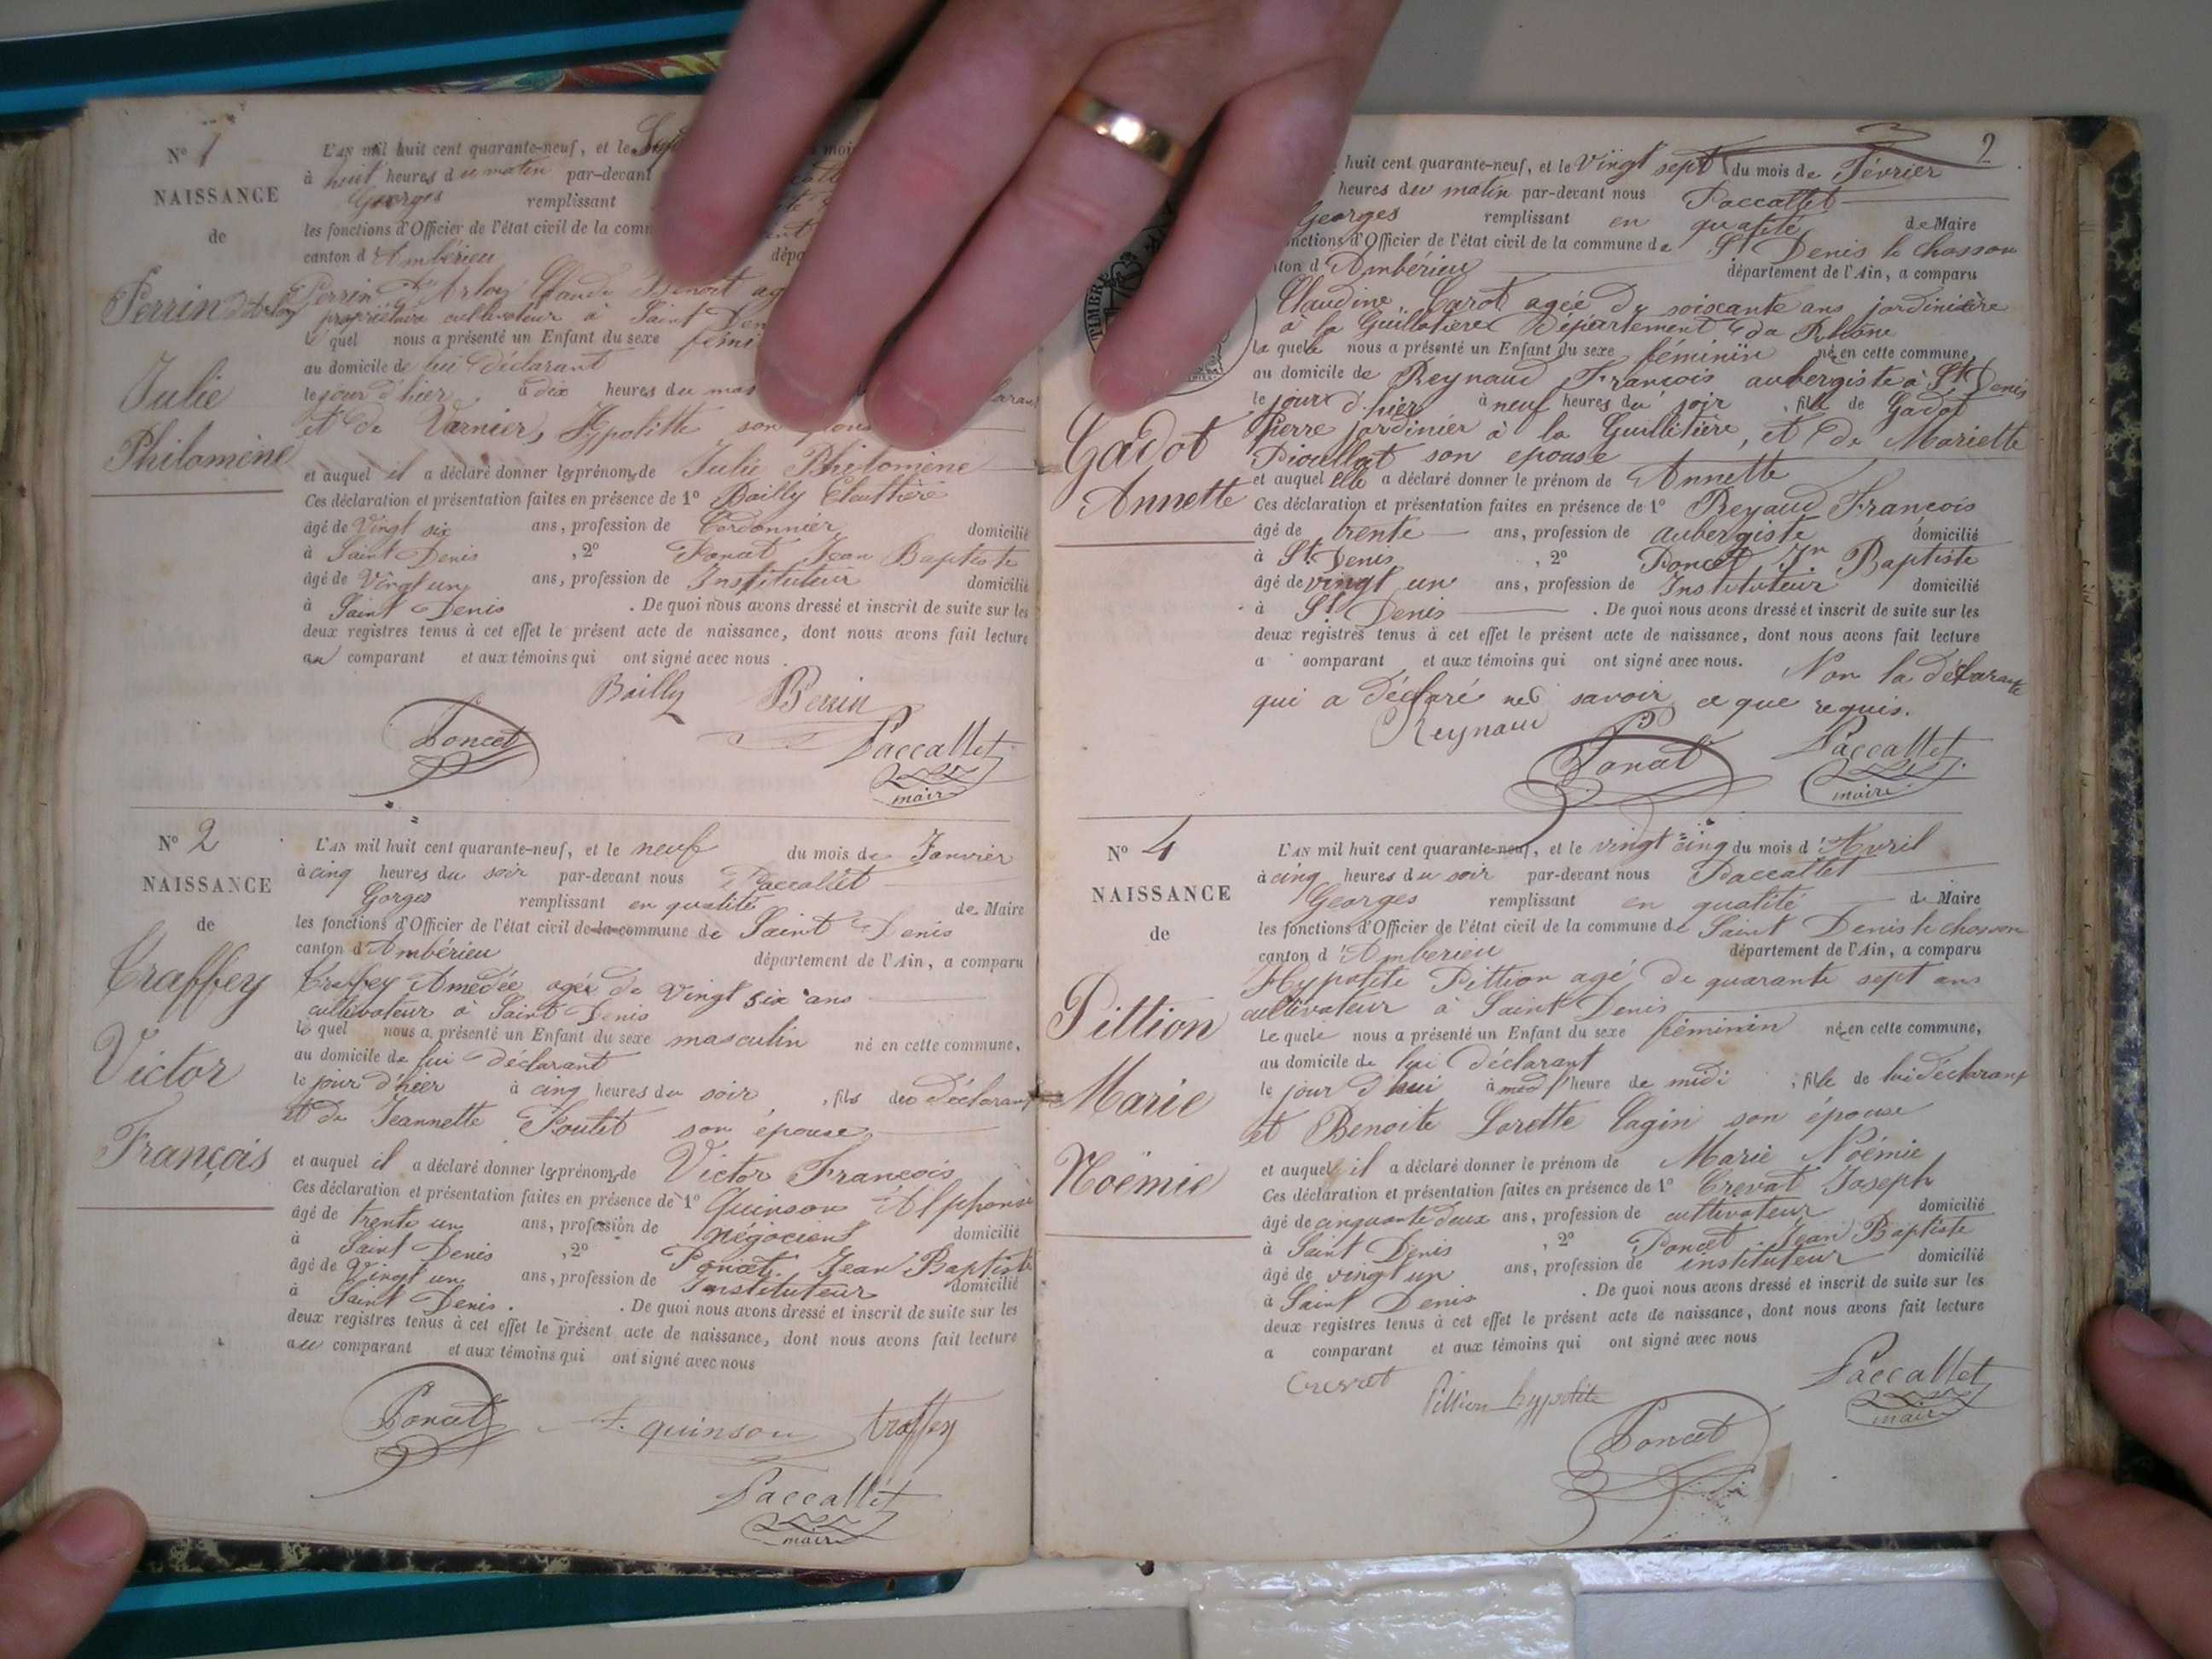 Nº 1
NAISSANCE
de
Perrin
Julie
Philomène
L'AN mil huit cent quarante-neuf, et le
à huit heures du matin par-devant
Georges remplissant
les fonctions d'Officier de l'état civil de la comm
canton d'Ambérieu dépa
Perrin D'Arloy Claude Benoit ag
propriétaire cultivateur à Saint Den
le quel nous a présenté un Enfant du sexe fémi
au domicile de lui déclarant
le jour d'hier à dix heures du
et de Varnier Hypolitte son
et auquel il a déclaré donner les prénoms de Julie Philomène
Ces déclaration et présentation faites en présence de 1º Bailly
âgé de Vingt six ans, profession de Cordonnier domicilié
à Saint Denis , 2º Poncet Jean Baptiste
âgé de Vingt un ans, profession de Instituteur domicilié
à Saint Denis . De quoi nous avons dressé et inscrit de suite sur les
deux registres tenus à cet effet le présent acte de naissance, dont nous avons fait lecture
au comparant et aux témoins qui ont signé avec nous
Bailly Perrin
Poncet Paccallet
maire
Nº 2
NAISSANCE
de
Traffey
Victor
François
L'AN mil huit cent quarante-neuf, et le neuf du mois de Janvier
à cinq heures du soir par-devant nous Paccallet
Gorges remplissant en qualité de Maire
les fonctions d'Officier de l'état civil de la commune de Saint Denis
canton d'Ambérieu département de l'Ain, a comparu
Traffey Amédée agée de vingt six ans
cultivateur à Saint Denis
le quel nous a présenté un Enfant du sexe masculin né en cette commune,
au domicile de lui déclarant
le jour d'hier à cinq heures du soir , fils du déclarant
et de Jeannette Poutet son épouse
et auquel il a déclaré donner les prénoms de Victor François
Ces déclaration et présentation faites en présence de 1º Quinson Alphonse
âgé de trente un ans, profession de négociant domicilié
à Saint Denis , 2º Poncet Jean Baptiste
âgé de Vingt un ans, profession de Instituteur domicilié
à Saint Denis . De quoi nous avons dressé et inscrit de suite sur les
deux registres tenus à cet effet le présent acte de naissance, dont nous avons fait lecture
au comparant et aux témoins qui ont signé avec nous
Poncet A. quinson traffey
Paccallet
maire
2
TIMBRE
Gadot
Annette
huit cent quarante-neuf, et le Vingt sept du mois de Février
heures du matin par-devant nous Paccallet
Georges remplissant en qualité de Maire
nctions d'Officier de l'état civil de la commune de St Denis le chosson
nton d'Ambérieu département de l'Ain, a comparu
Claudine Carot agée de soixante ans jardinière
à la Guillotière Département du Rhône
La quelle nous a présenté un Enfant du sexe féminin né en cette commune,
au domicile de Reynaud François aubergiste à St Denis
le jour d'hier à neuf heures du soir , fille de Gadot
Pierre jardinier à la Guillitière, et de Mariette
son epouse
et auquel elle a déclaré donner le prénom de Annette
Ces déclaration et présentation faites en présence de 1º Reynaud François
âgé de trente ans, profession de aubergiste domicilié
à St Denis , 2º Poncet Jn Baptiste
âgé de vingt un ans, profession de Instituteur domicilié
à St Denis . De quoi nous avons dressé et inscrit de suite sur les
deux registres tenus à cet effet le présent acte de naissance, dont nous avons fait lecture
a comparant et aux témoins qui ont signé avec nous. Non la déclarante
qui a déclaré ne savoir ce que requis.
Reynaud
Poncet Paccallet
maire
Nº 4
NAISSANCE
de
Pittion
Marie
Noëmie
L'AN mil huit cent quarante-neuf, et le vingt cinq du mois d'Avril
à cinq heures du soir par-devant nous Paccallet
Georges remplissant en qualité de Maire
les fonctions d'Officier de l'état civil de la commune de Saint Denis le chosson
canton d'Amberieu département de l'Ain, a comparu
Hypolite Pittion agé de quarante sept ans
cultivateur à Saint Denis
Le quel nous a présenté un Enfant du sexe féminin né en cette commune,
au domicile de lui déclarant
le jour d'hui à heure de midi , fille de lui déclarant
et Benoite Lorette Cagin son épouse
et auquel il a déclaré donner le prénom de Marie Noémie
Ces déclaration et présentation faites en présence de 1º Crevat Joseph
âgé de cinquante deux ans, profession de cultivateur domicilié
à Saint Denis , 2º Poncet Jean Baptiste
âgé de vingt un ans, profession de instituteur domicilié
à Saint Denis . De quoi nous avons dressé et inscrit de suite sur les
deux registres tenus à cet effet le présent acte de naissance, dont nous avons fait lecture
a comparant et aux témoins qui ont signé avec nous
Crevat Pittion hypolite Paccallet
maire
Poncet